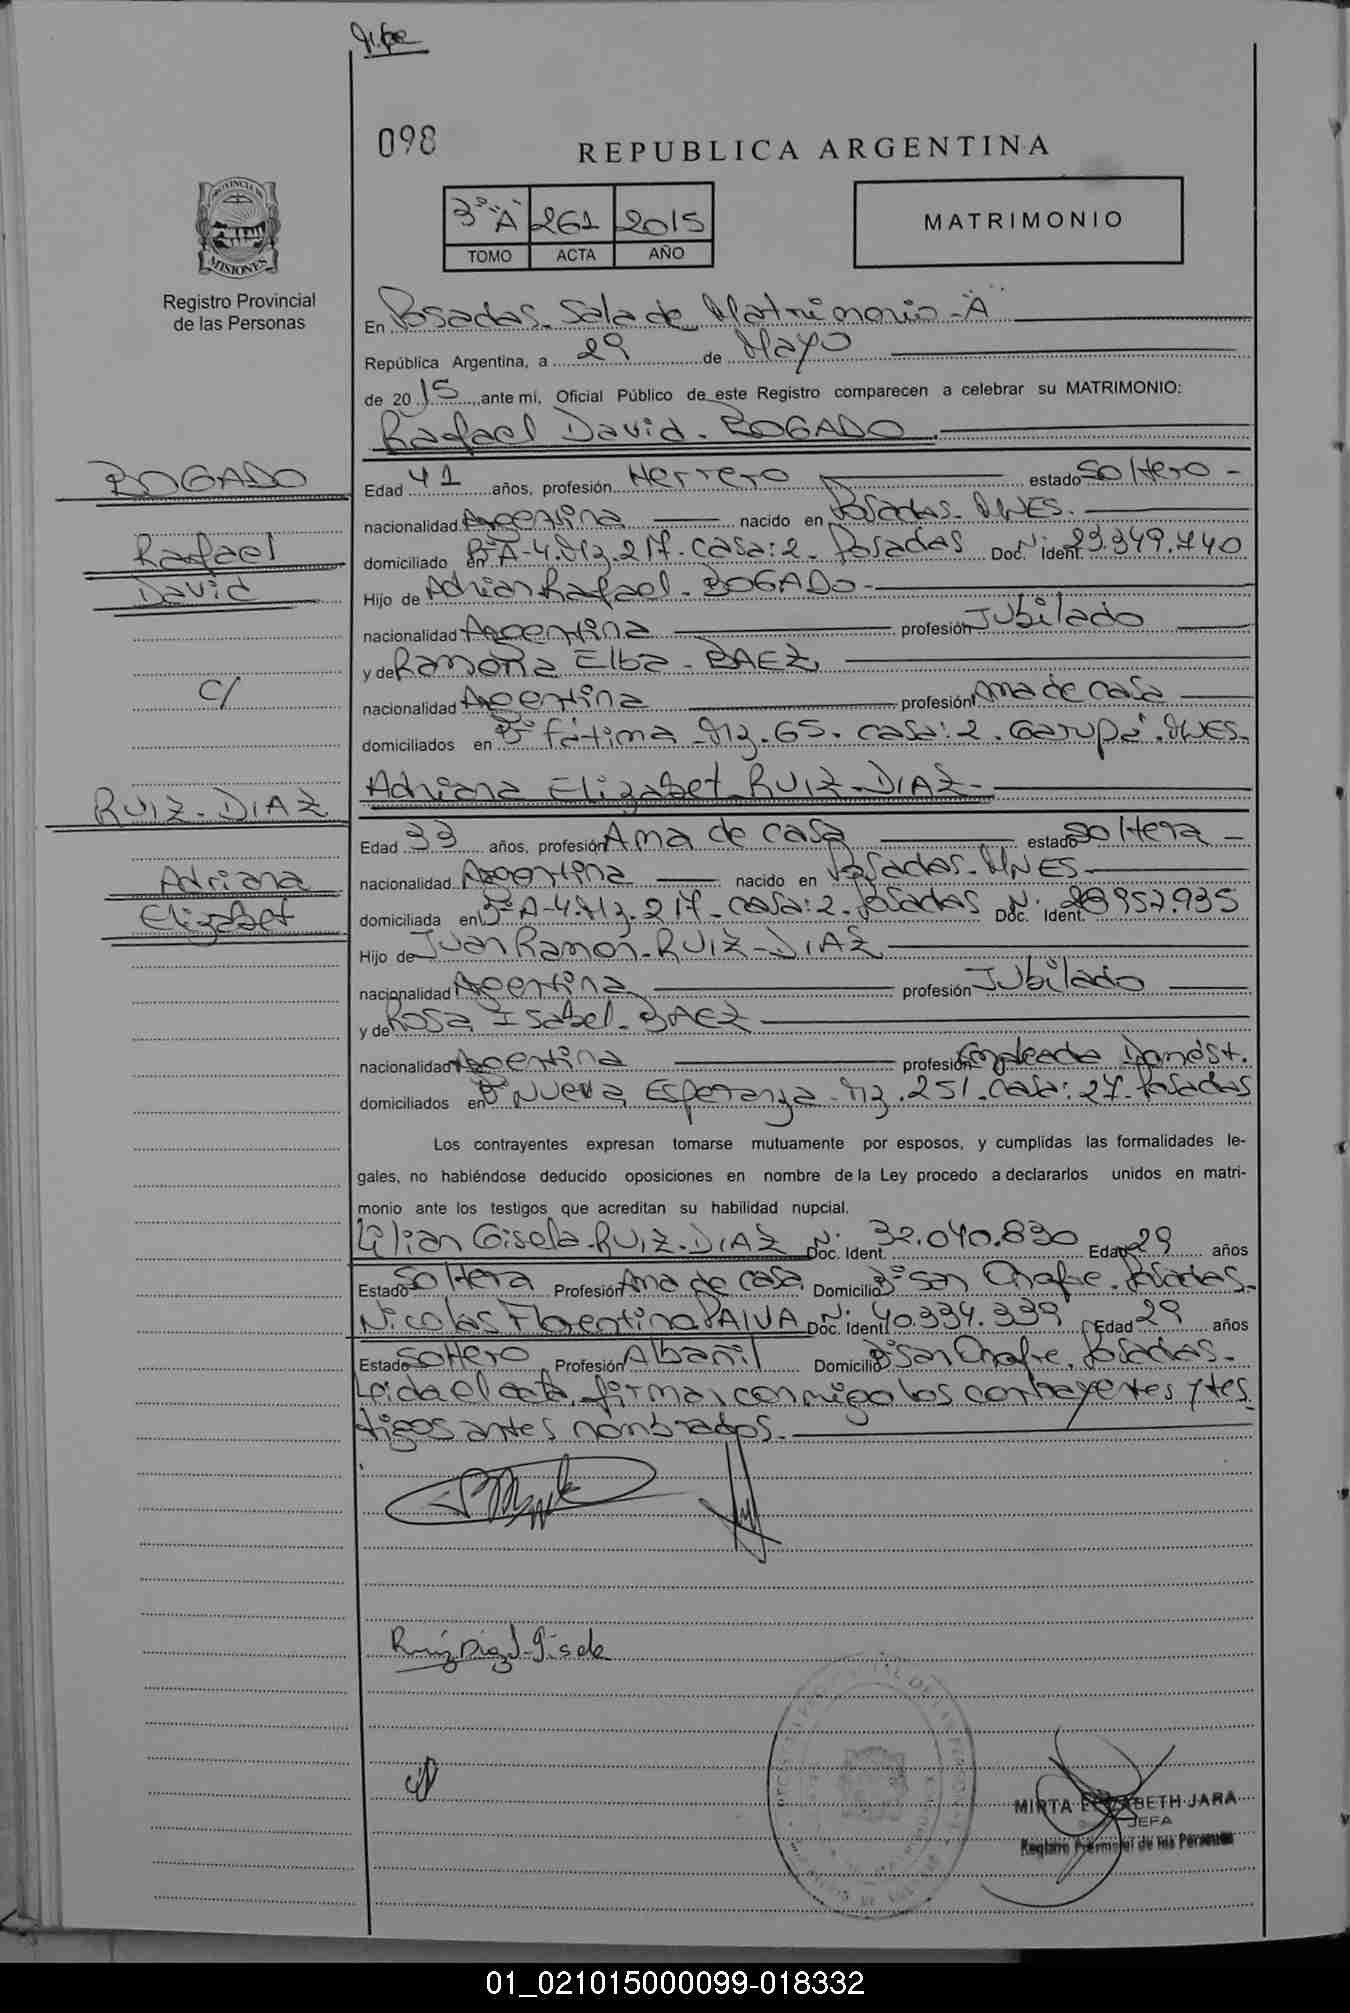 098
REPUBLICA ARGENTINA
3º "A" 261 2015
TOMO ACTA AÑO
MATRIMONIO
PROVINCIA DE
MISIONES
Registro Provincial
de las Personas
En Posadas. Sala de Matrimonio "A"
República Argentina, a 29 de Mayo
de 2015, ante mi, Oficial Público de este Registro comparecen a celebrar su MATRIMONIO:
Rafael David. BOGADO
BOGADO
Rafael
David
C/
RUIZ-DIAZ
Adriana
Elizabet
Edad 41 años, profesión Herrero estado Soltero -
nacionalidad Argentina nacido en Posadas. MNES.
domiciliado en Bº A-4. Mz. 217. casa: 2. Posadas Doc. Ident. Nº 23.349.740
Hijo de Adrian Rafael. BOGADO-
nacionalidad Argentina profesión Jubilado
y de Ramona Elba. BAEZ,
nacionalidad Argentina profesión Ama de casa
domiciliados en Bº Fátima Mz. 65. casa: 2. Garupá. MNES.
Adriana Elizabet RUIZ-DIAZ-
Edad 33 años, profesión Ama de casa estado Soltera -
nacionalidad Argentina nacido en Posadas. MNES
domiciliada en Bº A-4. Mz. 217. casa: 2. Posadas Doc. Ident. Nº 957.935
Hijo de Juan Ramon. RUIZ-DIAZ
nacionalidad Argentina profesión Jubilado
y de Rosa Isabel. BAEZ
nacionalidad Argentina profesión Empleada Domést.
domiciliados en Bº Nueva Esperanza. Mz. 251. casa: 27. Posadas
Los contrayentes expresan tomarse mutuamente por esposos, y cumplidas las formalidades le-
gales, no habiéndose deducido oposiciones en nombre de la Ley procedo a declararlos unidos en matri-
monio ante los testigos que acreditan su habilidad nupcial.
Lilian Gisela. RUIZ. DIAZ Doc. Ident. Nº 32.040.830 Edad 29 años
Estado Soltera Profesión Ama de casa Domicilio Bº San Onofre. Posadas.
Nicolas Florentino PAIVA Doc. Ident. Nº 40.334.339 Edad 29 años
Estado Soltero Profesión Albañil Domicilio Bº San Onofre. Posadas-
Leida el acta, firman conmigo los contrayentes y tes
tigos antes nombrados.
Ruiz Diaz L. Gisela
MIRTA ELIZABETH JARA
JEFA
Registro Provincial de las Personas
01_021015000099-018332